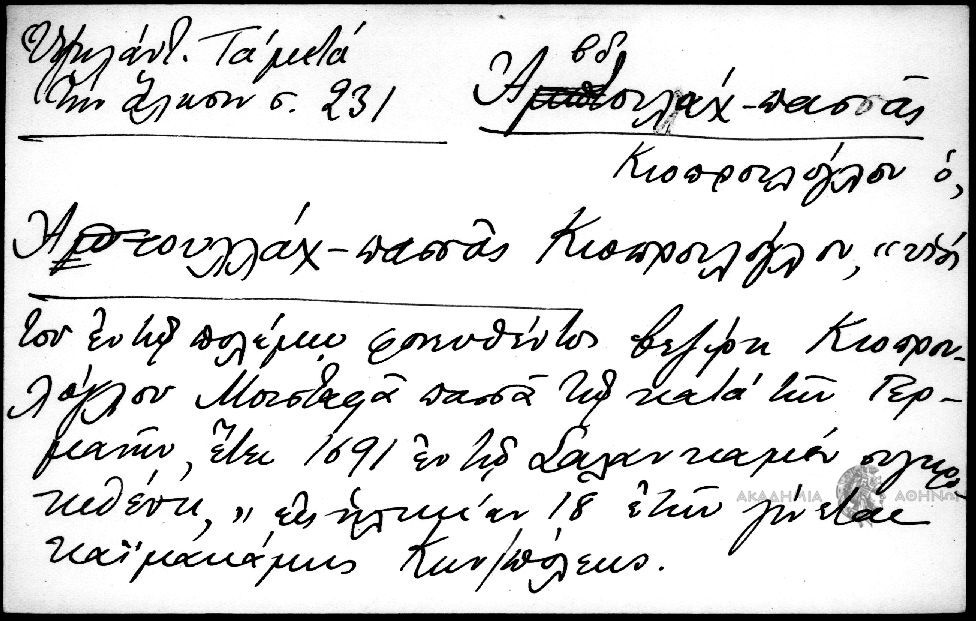 Ὑψηλάντ. Τά μετά
τὴν ἅλωσιν σ. 231
Ἀβδουλάχ-πασσᾶς
Κιοπρουλόγλου ὁ,
Ἀπτουλλάχ-πασσᾶς Κιοπρουλόγλου, "υἱὸς
τοῦ ἐν τῷ πολέμῳ φονευθέντος βεζίρη Κιοπρου-
λόγλου Μουσταφᾶ πασσᾶ τῷ κατά τῶν Γερ-
μανῶν, ἔτει 1691 ἐν τῷ Σαλανκαμέν συγκρο-
τηθέντι," εἰς ἡλικίαν 18 ἐτῶν γίνεται
καϊμακάμης Κων/πόλεως.
ΑΚΑΔΗΜΙΑ ΑΘΗΝΩΝ